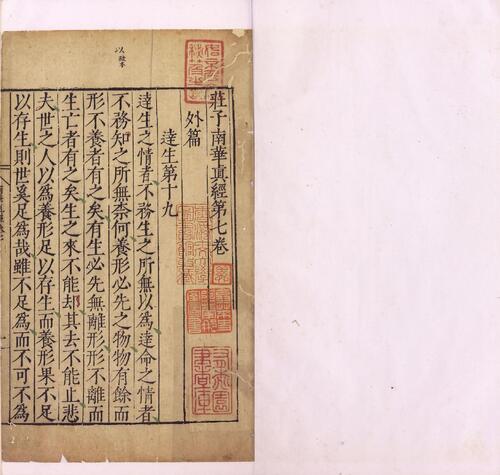 莊子南華眞經第七卷
外篇
達生第十九
達生之情者不務生之所無以爲達命之情者
不務知之所無柰何養形必先之物物有餘而
形不養者有之矣有生必先無離形形不離而
生亡者有之矣生之來不能却其去不能止悲
夫世之人以爲養形足以存生而養形果不足
以存生則世奚足爲哉雖不足爲而不可不爲